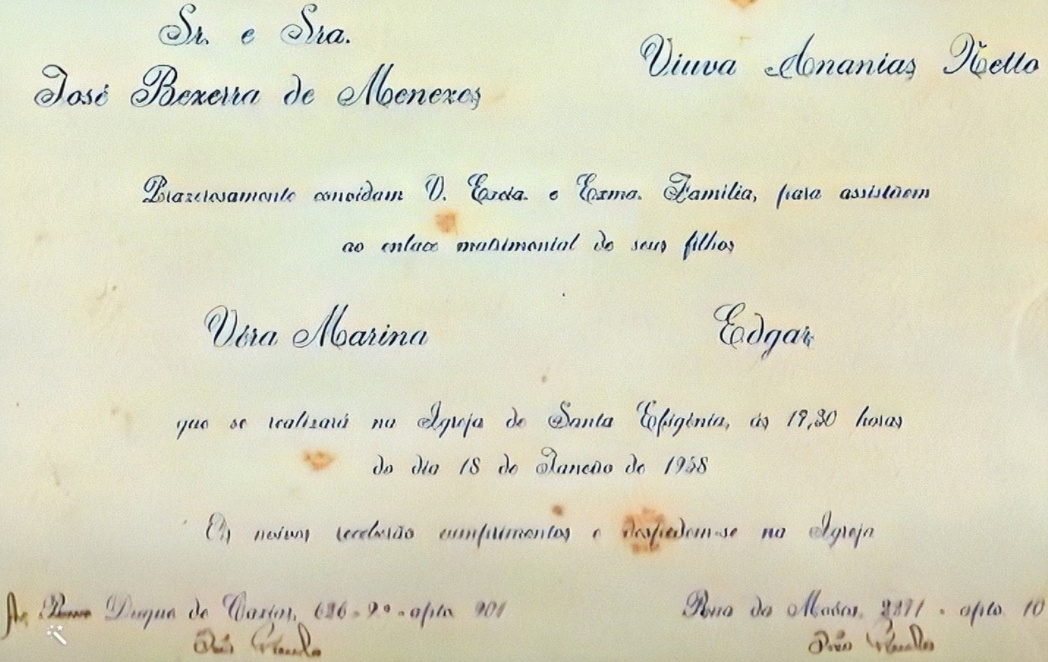 Sr. e Sra.
José Bezerra de Menezes
Viuva Ananias Netto
Prazerosamente convidam V. Excia. e Exma. Família, para assistirem
ao enlace matrimonial de seus filhos
Véra Marina
Edgar
que se realizará na Igreja de Santa Efigênia, ás 19,30 horas
do dia 18 de Janeiro de 1958
Os noivos receberão cumprimentos e despedem-se na Igreja
Av. Duque de Caxias, 626 - 9º - apto. 901
Rua da Moóca, 2871 - apto. 10
São Paulo
São Paulo